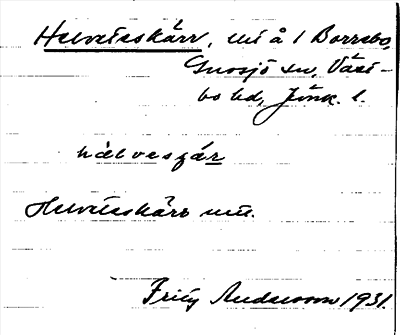 Helveteskärr, uti å 1 Borrebo,
Gnosjö sn, Väst-
bo hd, Jönk. l.
hälveszár
Helveteskärr utt.
Fritz Andersson 1931.